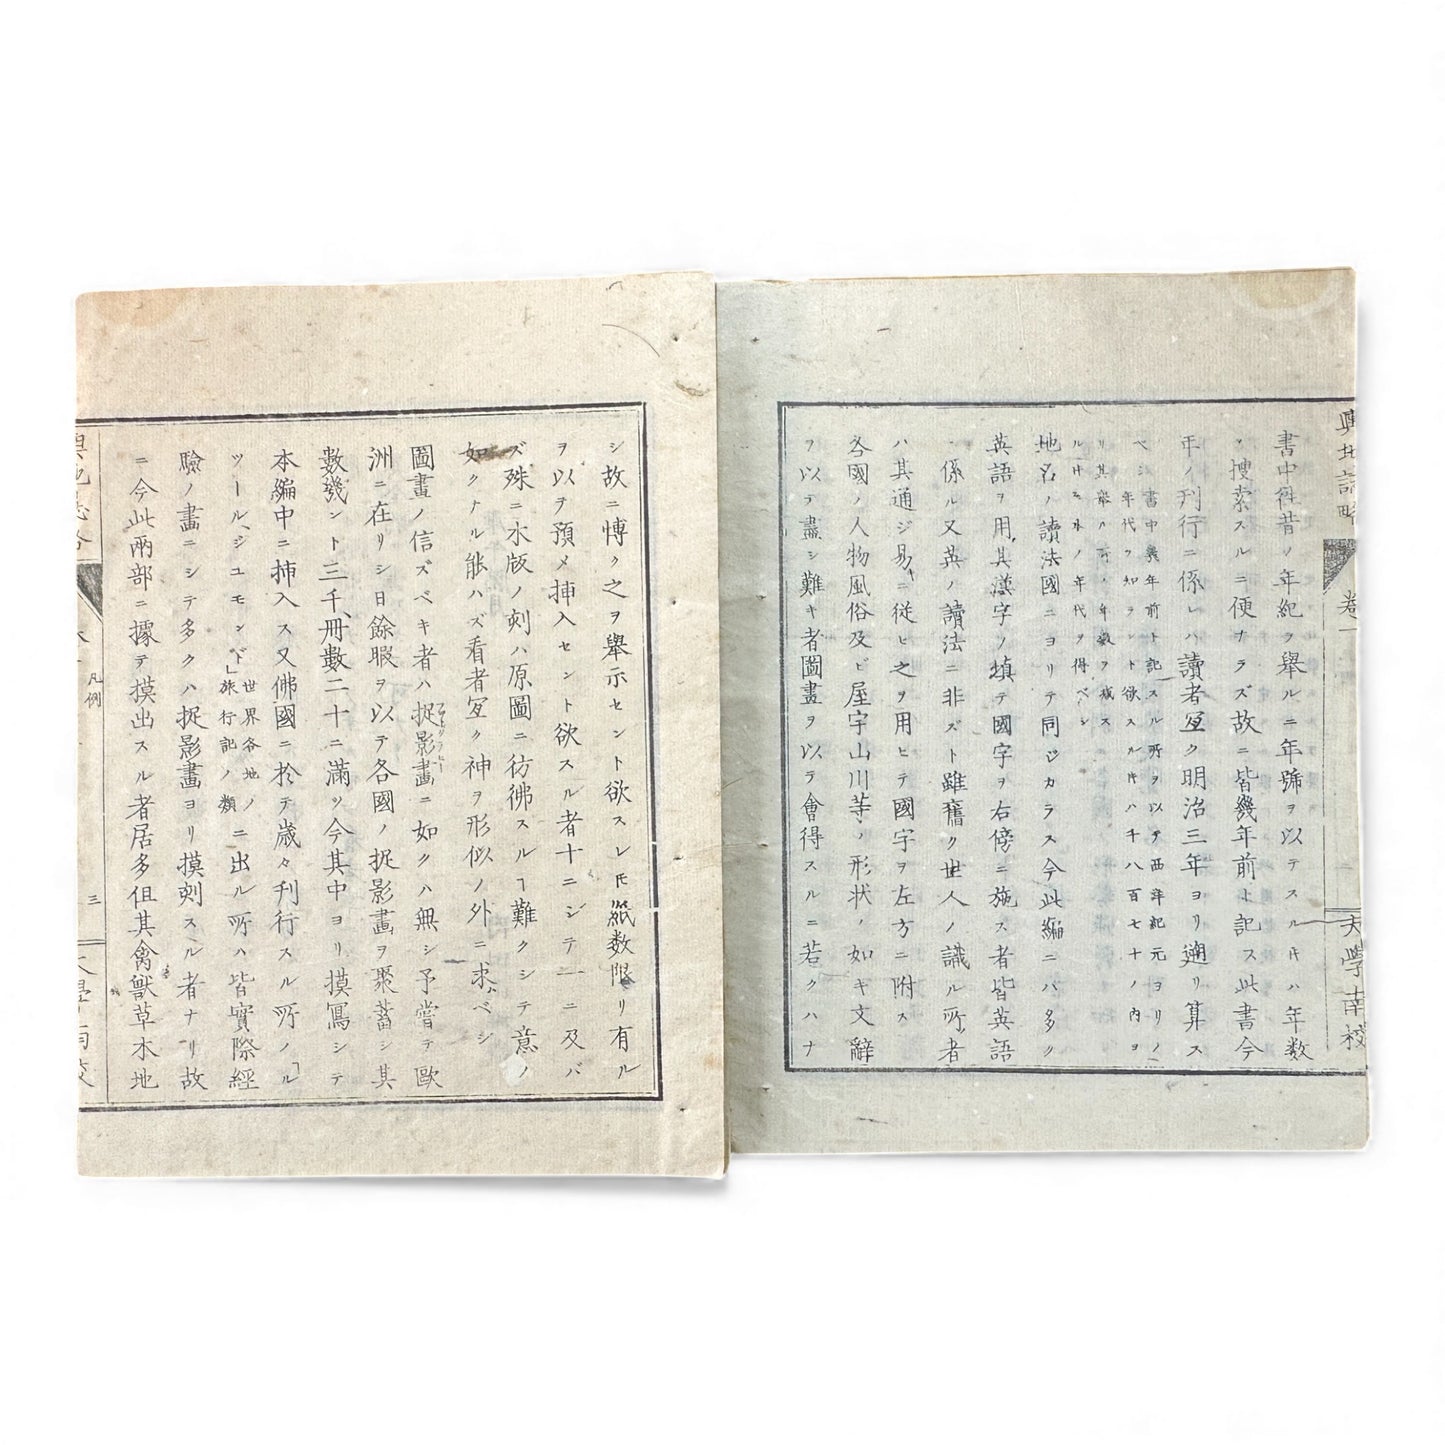 輿地誌略
卷一
二
大學南校
書中往昔ノ年紀ヲ舉ルニ年號ヲ以テスル𪜈ハ年数
、捜索スルニ便ナラズ故ニ皆幾年前ト記ス此書今
年ノ刊行ニ係レハ讀者冝ク明治三年ヨリ遡リ算ス
ベシ
書中幾年前ト記スル所ヲ以テ西洋紀元ヨリノ
年代ヲ知ラント欲スル𪜈ハ千八百七十ノ内ヨ
リ其舉ル所ノ年数ヲ減ス
ル𪜈ハ其年代ヲ得ベシ
地名ノ讀法國ニヨリテ同ジカラス今此編ニハ多ク
英語ヲ用其漢字ノ填テ國字ヲ右傍ニ施ス者皆英語
係ル又英ノ讀法ニ非ズト雖舊ク世人ノ識ル所ノ者
ハ其通ジ易キニ従ヒ之ヲ用ヒテ國字ヲ左方ニ附ス
各國ノ人物風俗及ビ屋宇山川等ノ形状ノ如キ文辭
ヲ以テ盡シ難キ者圖畫ヲ以ラ會得スルニ若クハナ
シ故ニ博ク之ヲ舉示セント欲スレ𪜈紙数限リ有ル
ヲ以ヲ預メ挿入セント欲スル者十ニシテ一ニ及バ
ズ殊ニ木版ノ刻ハ原圖ニ彷彿スルヿ難クシテ意ノ
如クナル能ハズ看者冝ク神ヲ形似ノ外ニ求ムベシ
圖畫ノ信ズベキ者ハ捉影畫ニ如クハ無シ予嘗テ歐
洲ニ在リシ日餘暇ヲ以テ各國ノ捉影畫ヲ聚蓄シ其
數幾ント三千、冊數二十ニ滿ツ今其中ヨリ摸寫シテ
本編中ニ挿入ス又佛國ニ於テ歳々刊行スル所ノ「ル
ツールジユモンド」
世界各地ノ
旅行記ノ類
ニ出ル所ハ皆實際經
驗ノ畫ニシテ多クハ捉影畫ヨリ摸刻スル者ナリ故
ニ今此兩部ニ據テ摸出スル者居多但其禽獸草木地
輿地誌略
凡例
三
大學南校